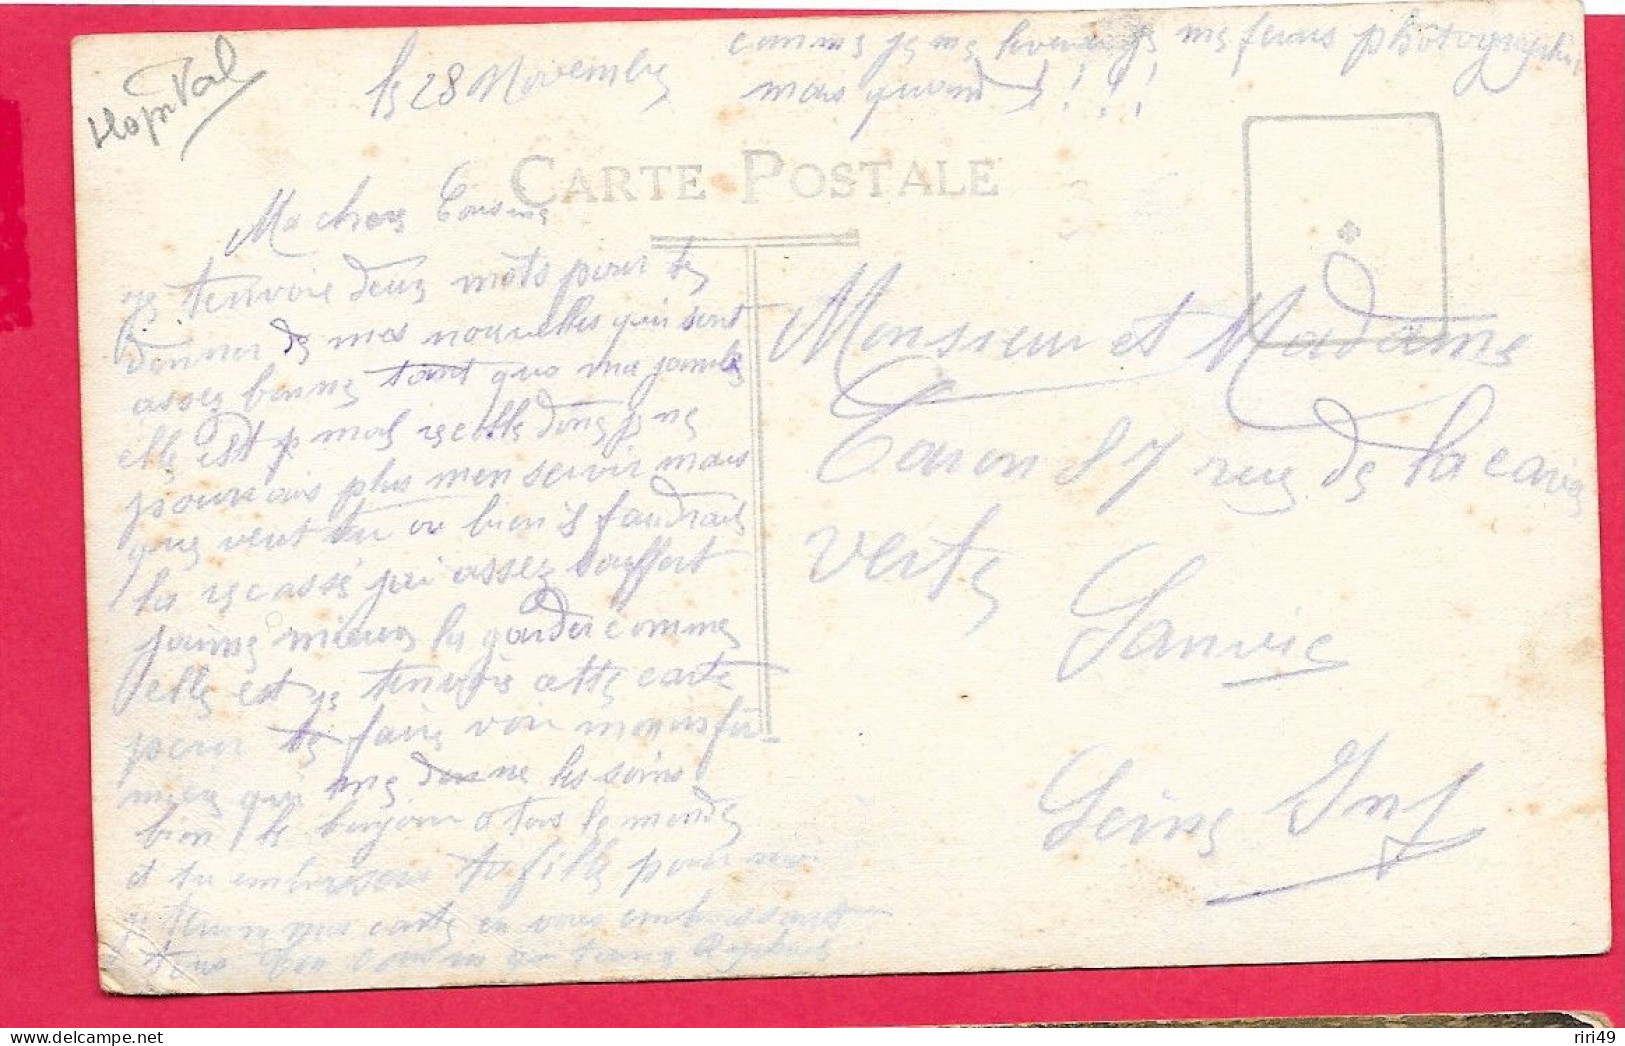 Hopital
le 28 Novembre
comme je me ferais photographier
mais quand !!!
CARTE POSTALE
Ma chere Cousine
je tenvoie deux mots pour te
donner de mes nouvelles qui sont
assez bonne tant que ma jambe
elle est mal recollé donc je ne
pourrais plus men servir mais
que veut tu ou bien il faudrait
la recassé jai assez souffert
jaime mieux la garder comme
elle est je tenvois cette carte
pour te faire voir mon infir-
mière qui me donne les soins
bien le bonjour a tous le monde
et tu embrasseras ta fille pour moi
je termine ma carte en vous embrassant
tous ton cousin qui taime
Monsieur et Madame
Caron 87 rue de la cavée
verte
Sanvic
Seine Inf
riri49